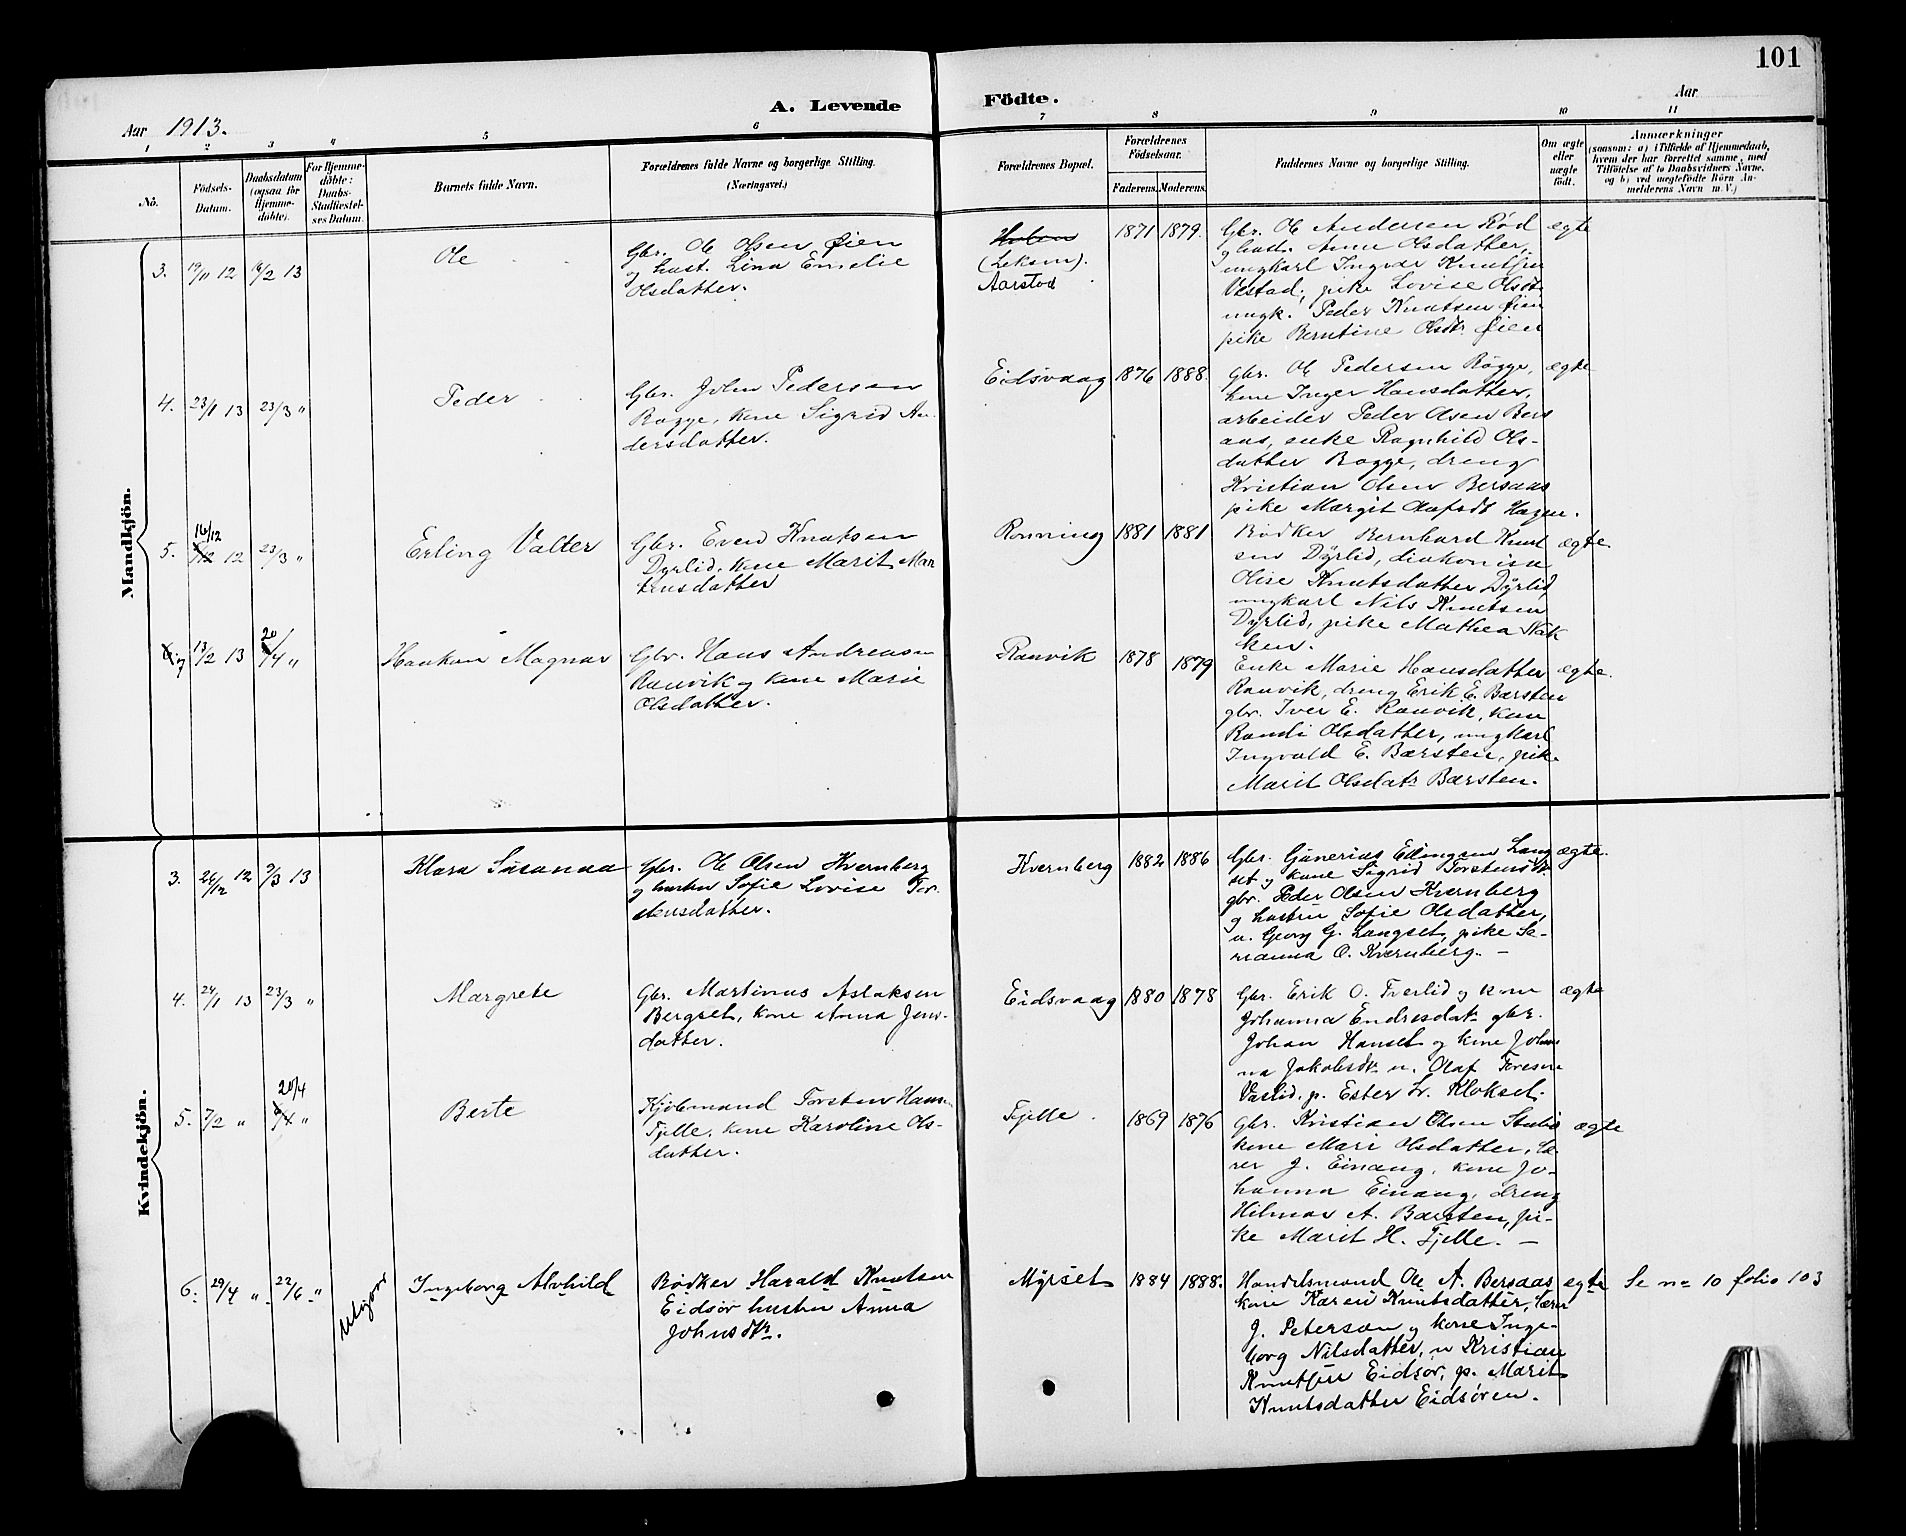 101
A. Levende Födte.
Aar 1913.
Aar
1 2 3 4 5 6 7 8 9 10 11
No.
Födsels-Datum.
Daabsdatum (ogsaa for Hjemmedöbte).
For Hjemmedöbte: Daabs-Stadfæstelses Datum.
Barnets fulde Navn.
Forældrenes fulde Navne og borgerlige Stilling. (Næringsvei.)
Forældrenes Bopæl.
Forældrenes Födselsaar.
Faderens. Moderens.
Faddernes Navne og borgerlige Stilling.
Om ægte eller uægte födt.
Anmærkninger
(saasom: a) i Tilfælde af Hjemmedaab, hvem der har forrettet samme, med Tilföielse af to Daabsvidners Navne, og b) ved uægtefödte Börn Anmelderens Navn m. V.)
Mandkjön.
3. 19/11 12 16/2 13
Ole
Gbr. Ole Olsen Øien
og hust. Lina Emelie
Olsdatter.
Holen
(Leksm).
Aarstad
1871 1879.
Gbr. Ole Andersen Rød
og hust. Anne Olsdatter,
ungkarl Ingvar Knutsen
Vestad, pike Lovise Olsdt
ungk. Peder Knutsen Øien
pike Berntine Olsdtr. Øien
ægte
4. 23/1 13 23/3 "
Peder
Gbr. John Pedersen
Rogge, kone Sigrid An-
dersdatter.
Eidsvaag 1876 1888.
Gbr. Ole Pedersen Rögge,
kone Inger Hansdatter,
arbeider Peder Olsen Bers
aas, enke Ragnhild Ols-
datter Rogge, dreng
Kristian Olsen Bersaas
pike Margit Olafsdt Hagen.
ægte
5. 16/12 12 23/3 "
Erling Valter
Gbr. Even Knutsen
Dyrlid, kone Marit Mar
tinusdatter
Rønning 1881 1881
Bødker Bernhard Knut
sen Dÿrlid, diakonisse
Olise Knutsdatter Dÿrlid
ungkarl Nils Knutsen
Dyrlid, pike Mathea Nak
ken.
ægte.
7 13/2 13 20/4 "
Haakon Magnar
Gbr. Hans Andreasen
Ranvik og kone Marie
Olsdatter.
Ranvik 1878 1879
Enke Marie Hansdatter
Ranvik, dreng Erik E. Bærsten
gbr. Iver E. Ranvik, kone
Randi Olsdatter, ungkarl
Ingvald E. Bærsten, pike
Marit Olsdatr Bærsten.
ægte.
Kvindekjön.
3. 26/12 12 9/3 13
Klara Susanna
Gbr. Ole Olsen Kvernberg
og hustru Sofie Lovise Tor-
stensdatter.
Kvernberg 1882 1886
Gbr. Gunerius Ellingsen Lang
set og kone Sigrid Torstensdt.
gbr. Peder Olsen Kvernberg
og hustru Sofie Olsdatter,
u. Georg G. Langset, pike Sa-
rianna O. Kvernberg. –
ægte.
4. 24/1 13 23/3 "
Margrete
Gbr. Martinus Aslaksen
Bergset, kone Anna Jens-
datter.
Eidsvaag 1880 1878
Gbr. Erik O. Tverlid og kone
Johanna Endresdatr gbr.
Johan Hanset og kone Johan
na Jakobsdtr u. Olaf Toresen
Vaslid. p. Ester Kr. Klokset.
ægte
5. 7/2 " 20/4 "
Berte
Kjöbmand Torsten Hans.
Fjelle, kone Karoline Ols-
datter.
Fjelle. 1869 1876
Gbr. Kristian Olsen Stubø
kone Mari Olsdatter, læ-
rer J. Einang, kone Jo-
hanna Einang, dreng
Hilmar A. Bærsten, pi-
ke Marit H. Fjelle. –
ægte
6. 29/4 " 22/6 "
Utgjør
Ingeborg Alvhild
Bødker Harald Knutsen
Eidsør hustru Anna
Johnsdtr.
Myrset 1884 1888.
Handelsmand Ole A. Bersaas
kone Karen Knutsdatter, lærer
J. Peterson og kone Inge-
borg Nilsdatter, u Kristian
Knutsen Eidsør, p. Marit
Knutsdatter Eidsören.
ægte
Se no 10 folio 103